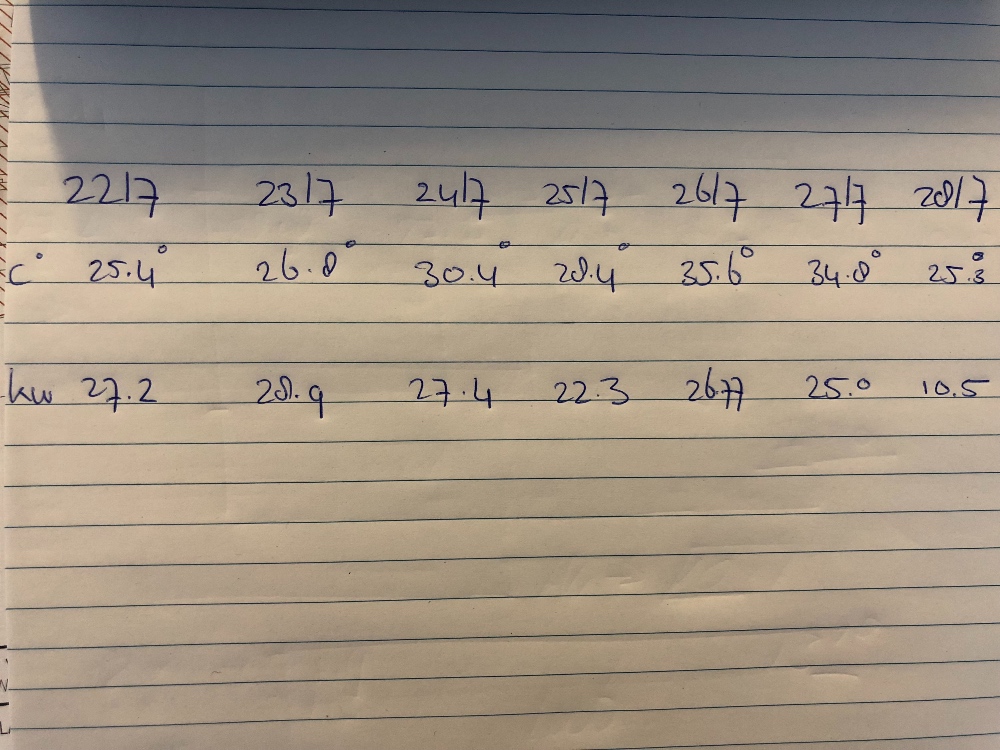 22/7 23/7 24/7 25/7 26/7 27/7 28/7
c° 25.4° 26.8° 30.4° 28.4° 35.6° 34.8° 25.3°
kw 27.2 28.9 27.4 22.3 26.77 25.0 10.5